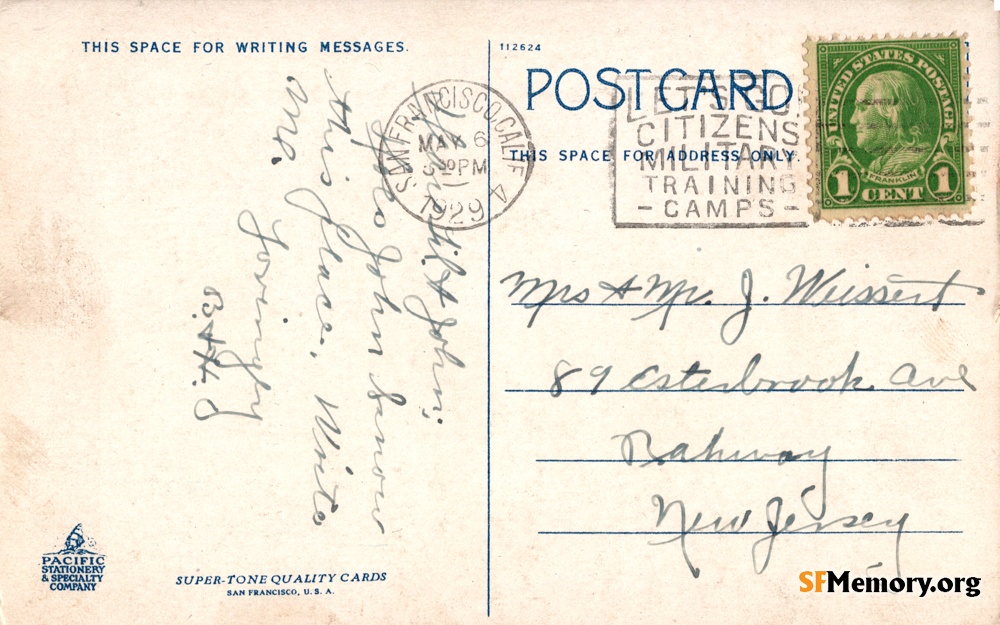 THIS SPACE FOR WRITING MESSAGES.
112624
POST CARD
THIS SPACE FOR ADDRESS ONLY.
SAN FRANCISCO, CALIF.
MAY 6
5 30 PM
1929
4
LET'S GO!
CITIZENS
MILITARY
TRAINING
- CAMPS -
UNITED STATES POSTAGE
FRANKLIN
1 CENT 1
& John:
John
this place. Write
me.
Lovingly
B. & H.
Mrs & Mr. J. Weissert
89 Esterbrook Ave
Rahway
New Jersey
PACIFIC
STATIONERY
& SPECIALTY
COMPANY
SUPER-TONE QUALITY CARDS
SAN FRANCISCO, U. S. A.
SFMemory.org